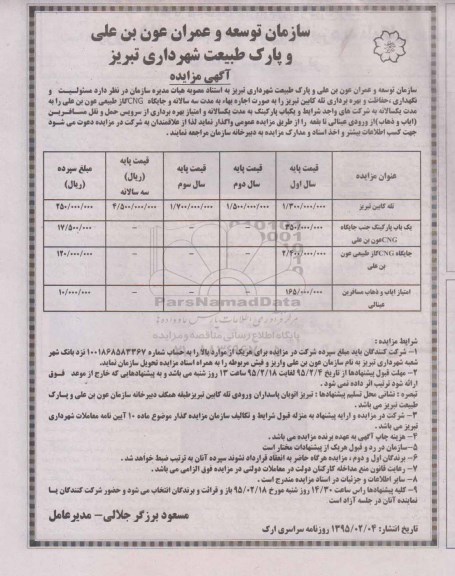 سازمان توسعه و عمران عون بن علی
و پارک طبیعت شهرداری تبریز
آگهی مزایده
سازمان توسعه و عمران عون بن علی و پارک طبیعت شهرداری تبریز به استناد مصوبه هیات مدیره سازمان در نظر دارد مسئولیت و
نگهداری ،حفاظت و بهره برداری تله کابین تبریز را به صورت اجاره بهاء به مدت سه سالانه و جایگاه CNGگاز طبیعی عون بن علی را به
مدت یکسالانه به شرکت های واجد شرایط و یکباب پارکینگ به مدت یکسالانه و امتیاز بهره برداری از سرویس حمل و نقل مسافرین
(ایاب و ذهاب)از ورودی عینالی تا بقعه را از طریق مزایده عمومی واگذار نماید لذا از علاقمندان به شرکت در مزایده دعوت می شود
جهت کسب اطلاعات بیشتر و اخذ اسناد و مدارک مزایده به دبیرخانه سازمان مراجعه نمایند.
عنوان مزایده | قیمت پایه سال اول | قیمت پایه سال دوم | قیمت پایه سال سوم | قیمت پایه (ریال) سه سالانه | مبلغ سپرده (ریال)
تله کابین تبریز | ۱/۳۰۰/۰۰۰/۰۰۰ | ۱/۵۰۰/۰۰۰/۰۰۰ | ۱/۷۰۰/۰۰۰/۰۰۰ | ۴/۵۰۰/۰۰۰/۰۰۰ | ۲۵۰/۰۰۰/۰۰۰
یک باب پارکینگ جنب جایگاه CNGعون بن علی | ۳۵۰/۰۰۰/۰۰۰ | - | - | - | ۱۷/۵۰۰/۰۰۰
جایگاه CNGگاز طبیعی عون بن علی | ۲/۴۰۰/۰۰۰/۰۰۰ | - | - | - | ۱۲۰/۰۰۰/۰۰۰
امتیاز ایاب و ذهاب مسافرین عینالی | ۱۶۵/۰۰۰/۰۰۰ | - | - | - | ۱۰/۰۰۰/۰۰۰
ParsNamadData
پایگاه اطلاع رسانی مناقصه و مزایده
شرایط مزایده :
۱- شرکت کنندگان باید مبلغ سپرده شرکت در مزایده برای هریک از موارد بالا را به حساب شماره ۱۰۰۱۸۶۸۵۸۳۳۶۷ نزد بانک شهر
شعبه شهرداری تبریز به نام سازمان عون بن علی واریز و فیش مربوطه را به همراه اسناد مزایده تحویل سازمان نمایند.
۲- مهلت قبول پیشنهادها از تاریخ ۹۵/۲/۴ لغایت ۹۵/۲/۱۸ ساعت ۱۳ روز شنبه می باشد و به پیشنهادهایی که خارج از موعد فوق
ارائه شود ترتیب اثر داده نمی شود.
تبصره : نشانی محل تسلیم پیشنهادها : تبریز اتوبان پاسداران ورودی تله کابین تبریزطبقه همکف دبیرخانه سازمان عون بن علی و پارک
طبیعت تبریز می باشد .
۳- شرکت در مزایده و ارایه پیشنهاد به منزله قبول شرایط و تکالیف سازمان مزایده گذار موضوع ماده ۱۰ آیین نامه معاملات شهرداری
تبریز می باشد .
۴- هزینه چاپ آگهی به عهده برنده مزایده می باشد .
۵-سازمان در رد و قبول هریک از پیشنهادات مختار است
۶- برندگان اول و دوم ، مزایده هرگاه حاضر به انعقاد قرارداد نشوند سپرده آنان به ترتیب ضبط خواهد شد .
۷- رعایت قانون منع مداخله کارکنان دولت در معاملات دولتی در مزایده فوق الزامی می باشد .
۸- سایر اطلاعات و جزئیات در اسناد مزایده مندرج است .
۹- کلیه پیشنهادها راس ساعت ۱۴/۳۰ روز شنبه مورخ ۹۵/۰۲/۱۸ باز و قرائت و برندگان انتخاب می شود و حضور شرکت کنندگان یا
نماینده آنان در جلسه آزاد است
مسعود برزگر جلالی- مدیرعامل
تاریخ انتشار: ۱۳۹۵/۰۲/۰۴ روزنامه سراسری ارک